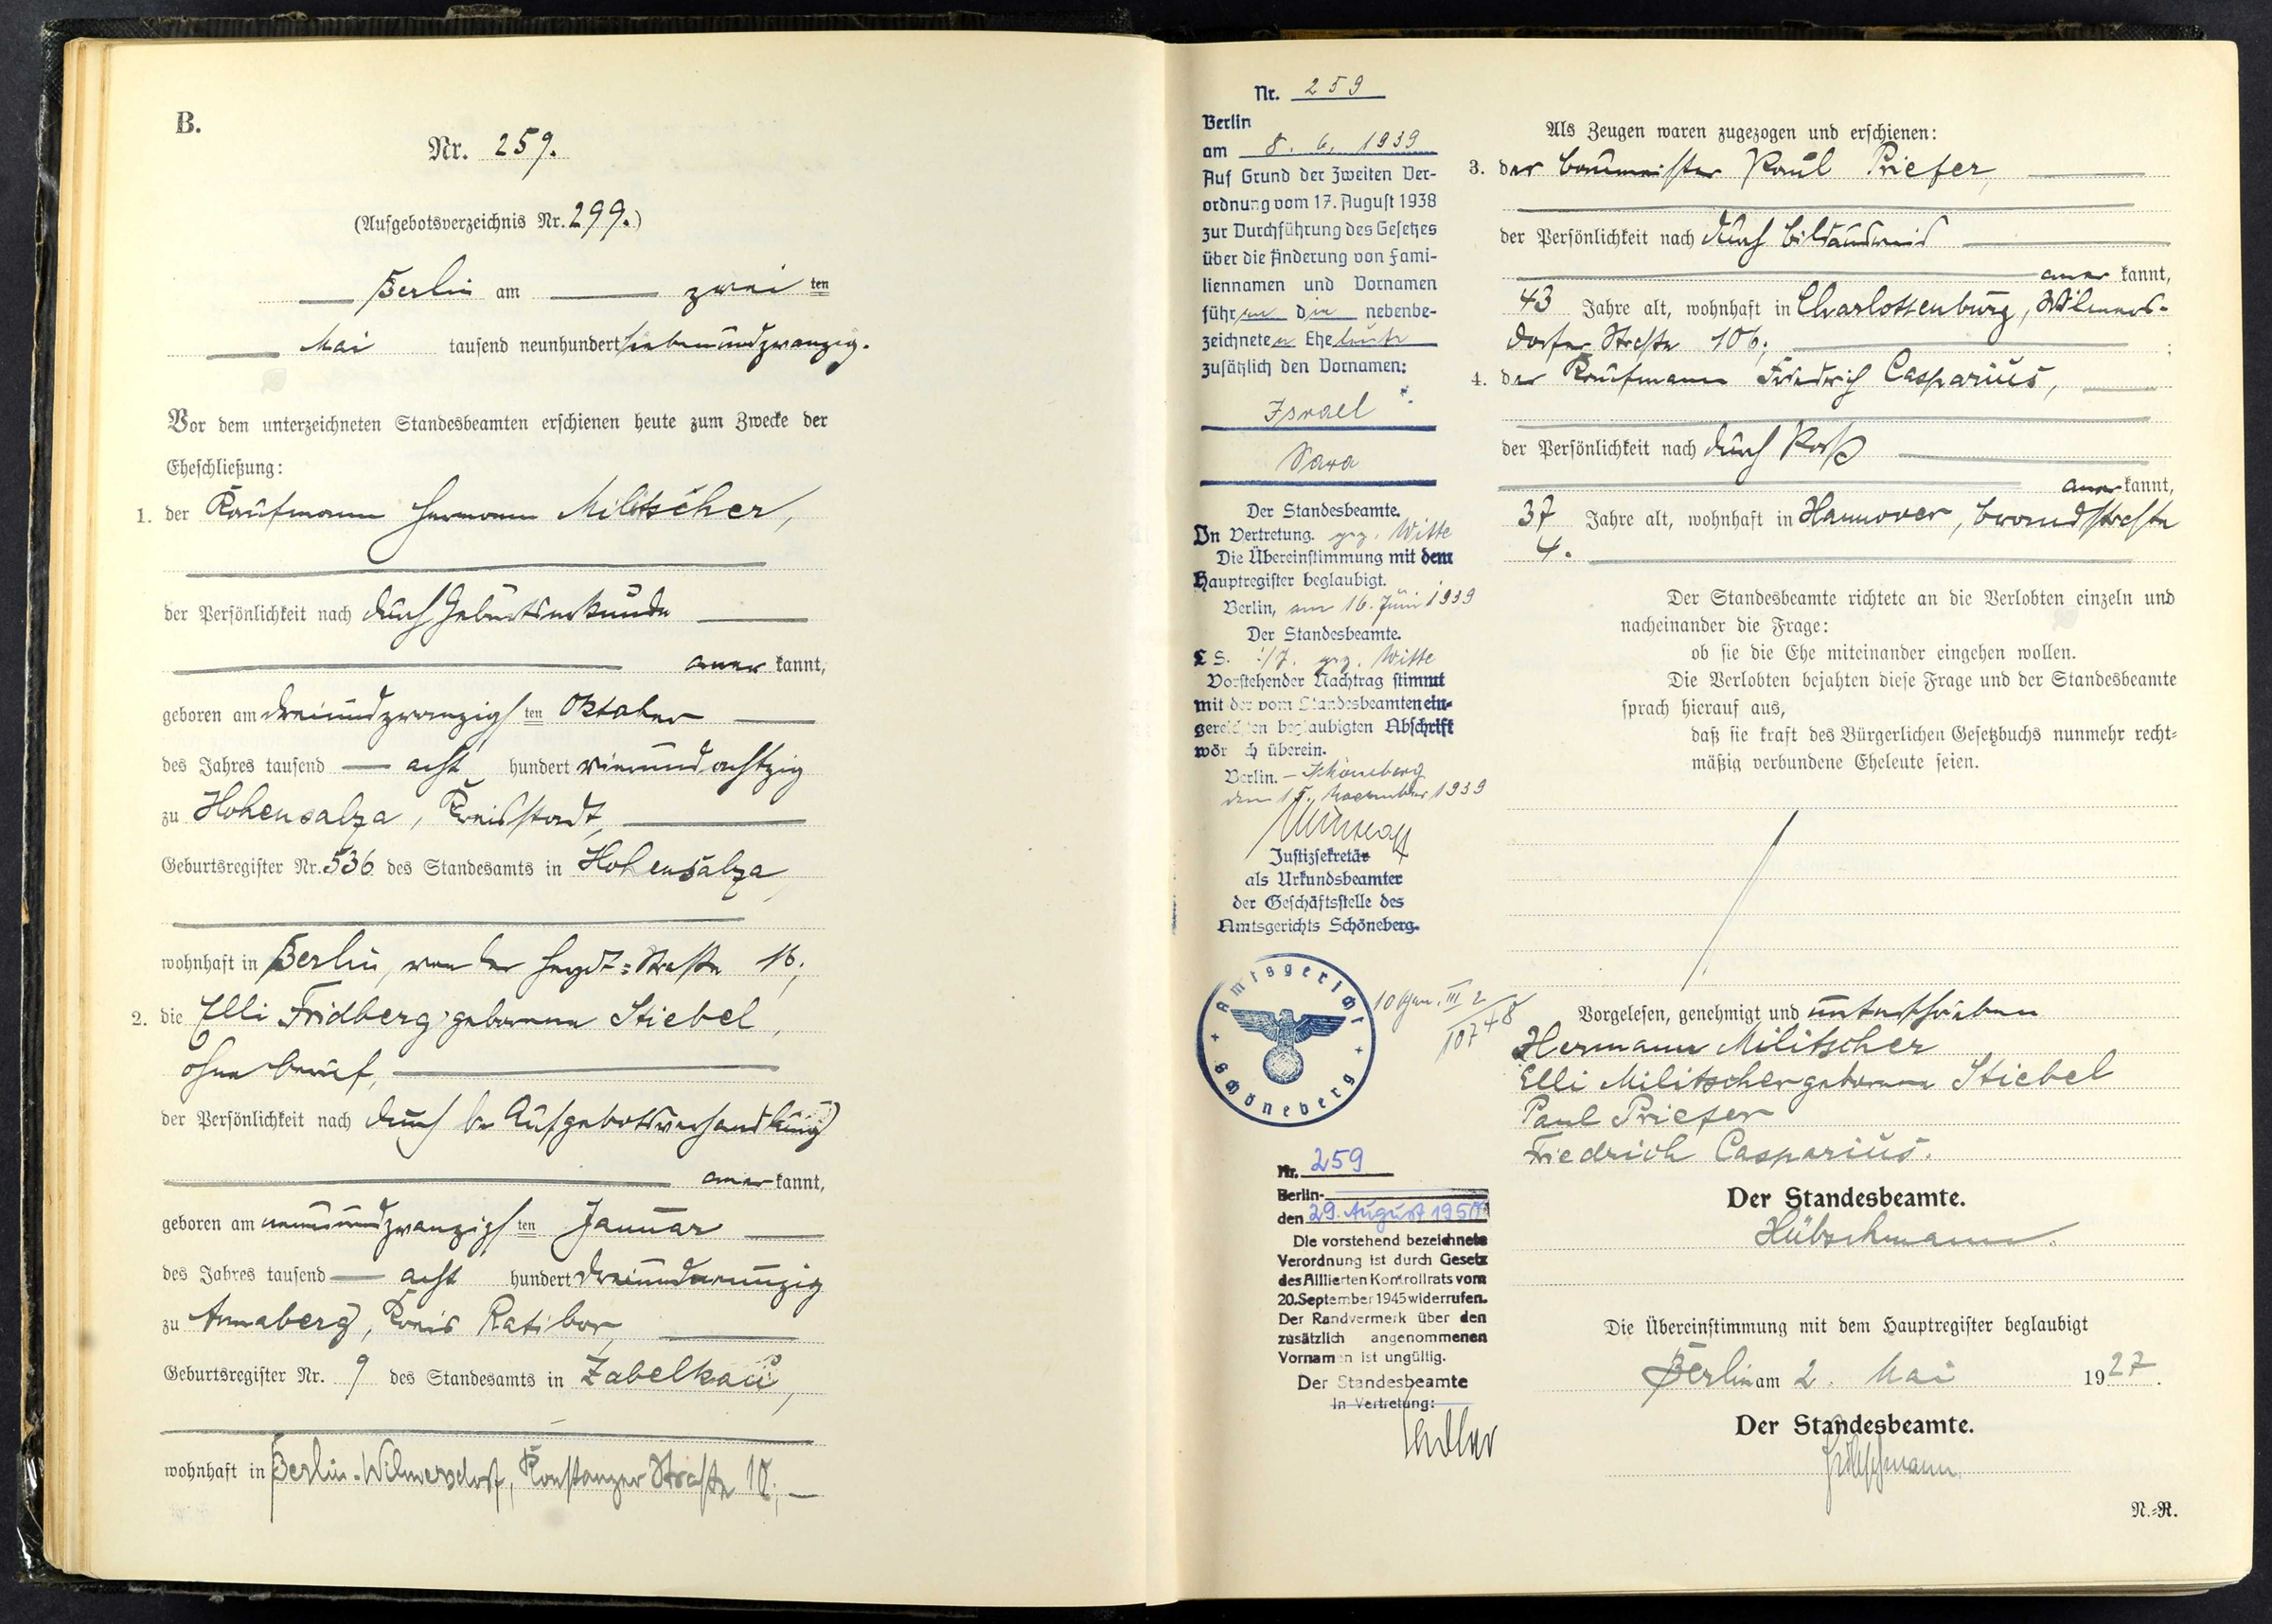 B.
Nr. 259.
(Aufgebotsverzeichnis Nr. 299.)
Berlin am zwei ten
Mai tausend neunhundert siebenundzwanzig.
Vor dem unterzeichneten Standesbeamten erschienen heute zum Zwecke der
Eheschließung:
1. der Kaufmann Hermann Militscher,
der Persönlichkeit nach durch Geburtsurkunde
aner kannt,
geboren am dreiundzwanzigs ten Oktober
des Jahres tausend acht hundert vierundachtzig
zu Hohensalza, Kreisstadt,
Geburtsregister Nr. 536 des Standesamts in Hohensalza,
wohnhaft in Berlin, von der Heydt-Straße 16;
2. die Elli Fridberg geborene Stiebel,
ohne Beruf,
der Persönlichkeit nach durch die Aufgebotsverhandlung
aner kannt,
geboren am neunundzwanzigs ten Januar
des Jahres tausend acht hundert dreiundneunzig
zu Annaberg, Kreis Ratibor,
Geburtsregister Nr. 9 des Standesamts in Zabelkau,
wohnhaft in Berlin-Wilmersdorf, Konstanzer Straße 10;
Nr. 259
Berlin
am 8. 6. 1939
Auf Grund der Zweiten Ver-
ordnung vom 17. August 1938
zur Durchführung des Gesetzes
über die Änderung von Fami-
liennamen und Vornamen
führen die nebenbe-
zeichneten Eheleute
zusätzlich den Vornamen:
Israel
Sara
Der Standesbeamte.
In Vertretung. gez. Witte
Die Übereinstimmung mit dem
Hauptregister beglaubigt.
Berlin, am 16. Juni 1939
Der Standesbeamte.
L S. gez. Witte
Vorstehender Nachtrag stimmt
mit der vom Standesbeamten ein-
gereichten beglaubigten Abschrift
wörtlich überein.
Berlin. - Schöneberg
den 15. November 1939
Justizsekretär
als Urkundsbeamter
der Geschäftsstelle des
Amtsgerichts Schöneberg.
Amtsgericht Schöneberg
Nr. 259
Berlin-
den 29. August 195
Die vorstehend bezeichnete
Verordnung ist durch Gesetz
des Alliierten Kontrollrats vom
20. September 1945 widerrufen.
Der Randvermerk über den
zusätzlich angenommenen
Vornamen ist ungültig.
Der Standesbeamte
In Vertretung:
Als Zeugen waren zugezogen und erschienen:
3. der Baumeister Paul Priefer,
der Persönlichkeit nach durch Bildausweis
aner kannt,
43 Jahre alt, wohnhaft in Charlottenburg, Wilmers-
dorfer Straße 106;
4. der Kaufmann Friedrich Casparius,
der Persönlichkeit nach durch Paß
aner kannt,
37 Jahre alt, wohnhaft in Hannover, Brandstraße
4.
Der Standesbeamte richtete an die Verlobten einzeln und
nacheinander die Frage:
ob sie die Ehe miteinander eingehen wollen.
Die Verlobten bejahten diese Frage und der Standesbeamte
sprach hierauf aus,
daß sie kraft des Bürgerlichen Gesetzbuchs nunmehr recht-
mäßig verbundene Eheleute seien.
Vorgelesen, genehmigt und unterschrieben
Hermann Militscher
Elli Militscher geborene Stiebel
Paul Priefer
Friedrich Casparius.
Der Standesbeamte.
Hübschmann.
Die Übereinstimmung mit dem Hauptregister beglaubigt
Berlin am 2. Mai 1927.
Der Standesbeamte.
Hübschmann
N.-R.